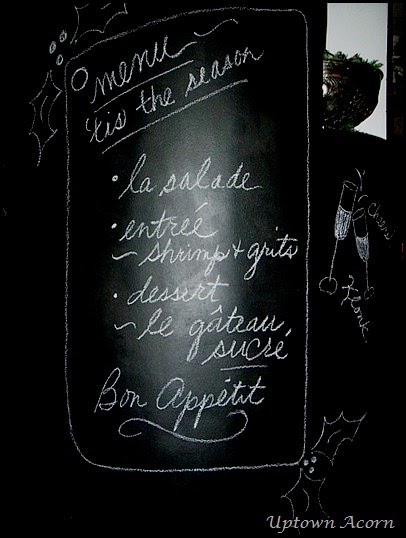 menu
'tis the season
• la salade
• entrée
~ shrimp & grits
• dessert
~ le gâteau
sucré
Bon Appétit
Cheers
Uptown Acorn